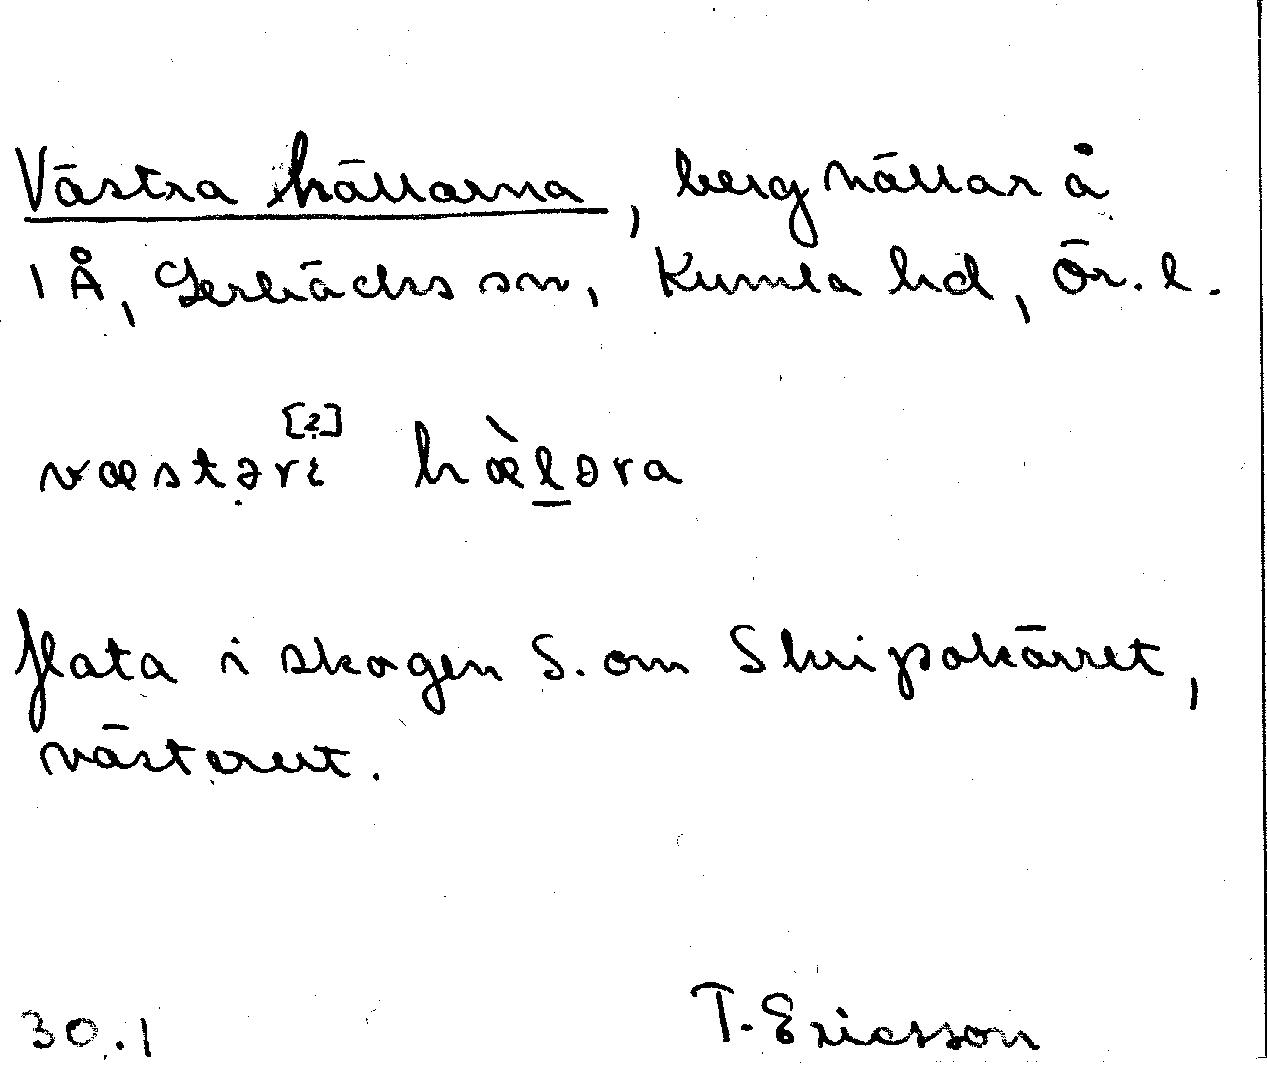 Västra hällarna, berghällar å
1 Å, Lerbäcks sn, Kumla hd, Ör. l.
[2]
væstəri hæ̀ləra
flata i skogen S. om Skripakärret,
västerut.
30.1 T. Ericsson